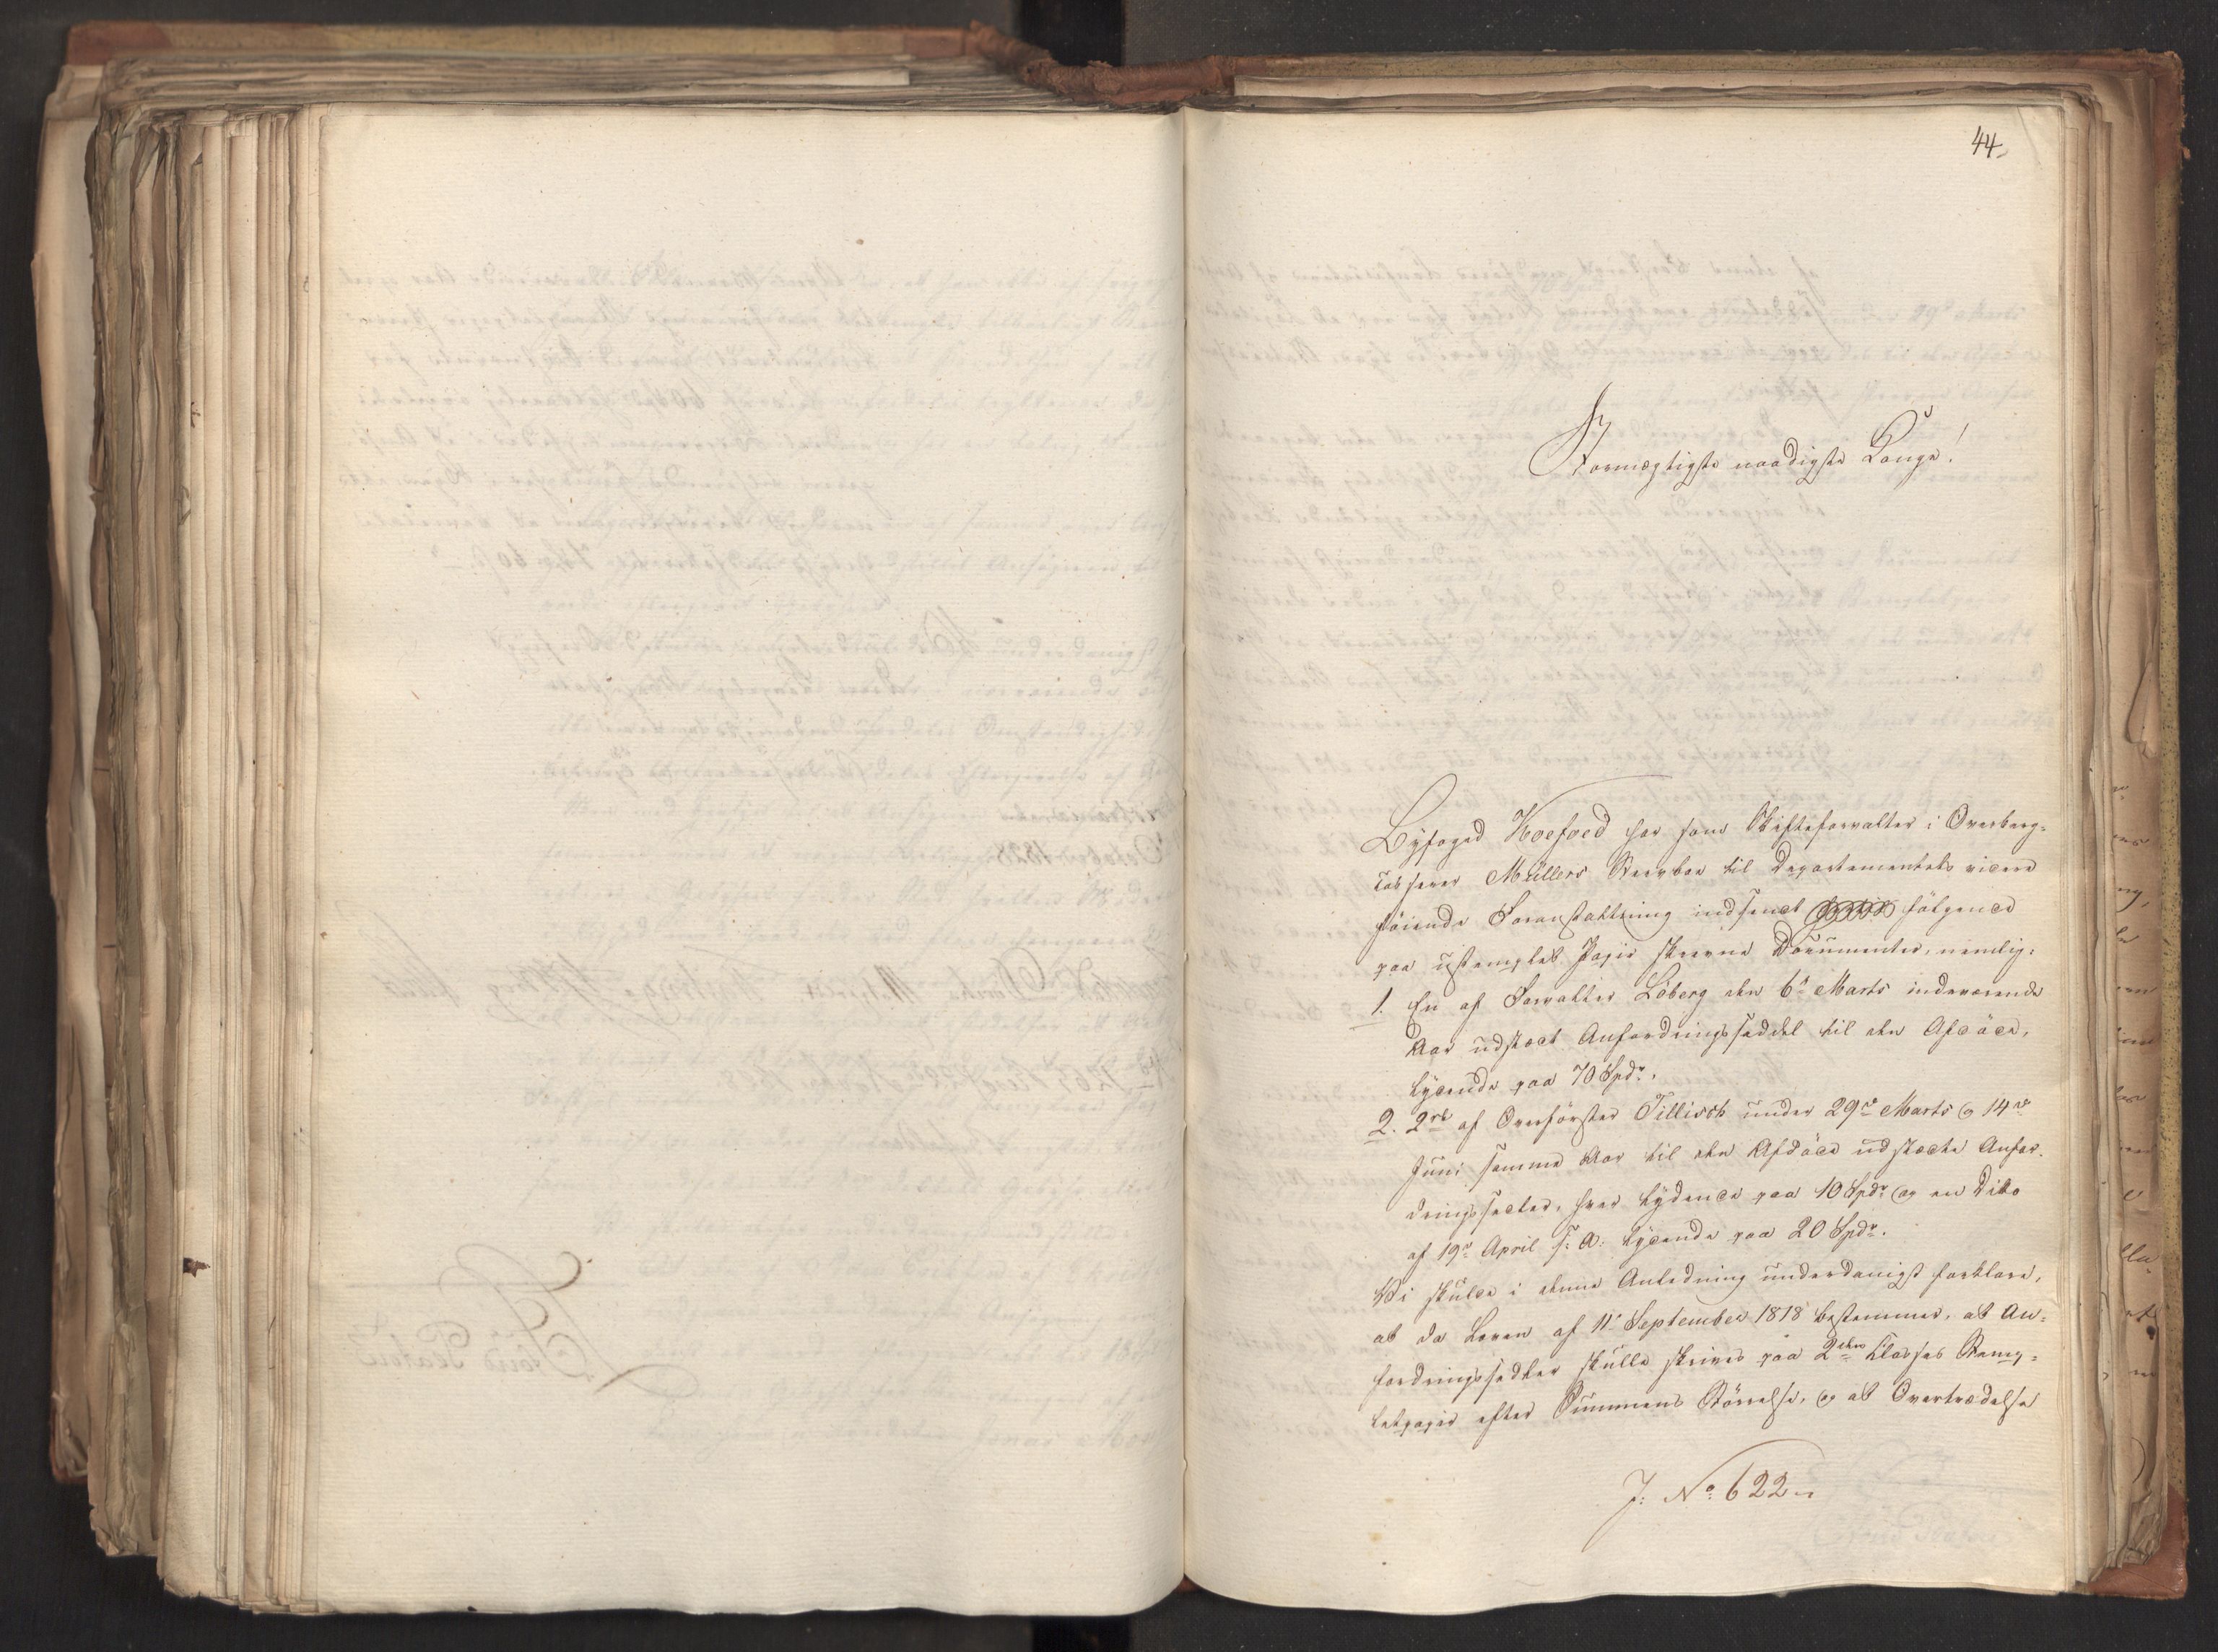 44.
Stormægtigste naadigste Konge!
Byfoged Hoefoed har som Skifteforvalter i Overberg-
Müllers Stervboe til Departementets videre
föiende Foranstaltning indsendt fölgende
paa ustemplet Papir skrevne Documenter, nemlig:
1. En af Forvalter Löberg den 6te Marts indeværende
Aar udstædt Anfordringsseddel til den Afdöde,
lydende paa 70 Spdr.
2. 2de af Overförster Tillisch under 29de Marts og 14de
Juni samme Aar til den Afdöde udstædte Anfor-
dringssedler, hver lydende paa 10 Spdr og en Dito
af 19de April s: A: lydende paa 20 Spdr.
Vi skulde i denne Anledning underdanigst forklare,
at da Loven af 11te September 1818 bestemmer, at An-
fordringssedler skulle skrives paa 2den Classes Stemp-
letpapir efter Summens Störrelse, og at Overtrædelse
J: No 622